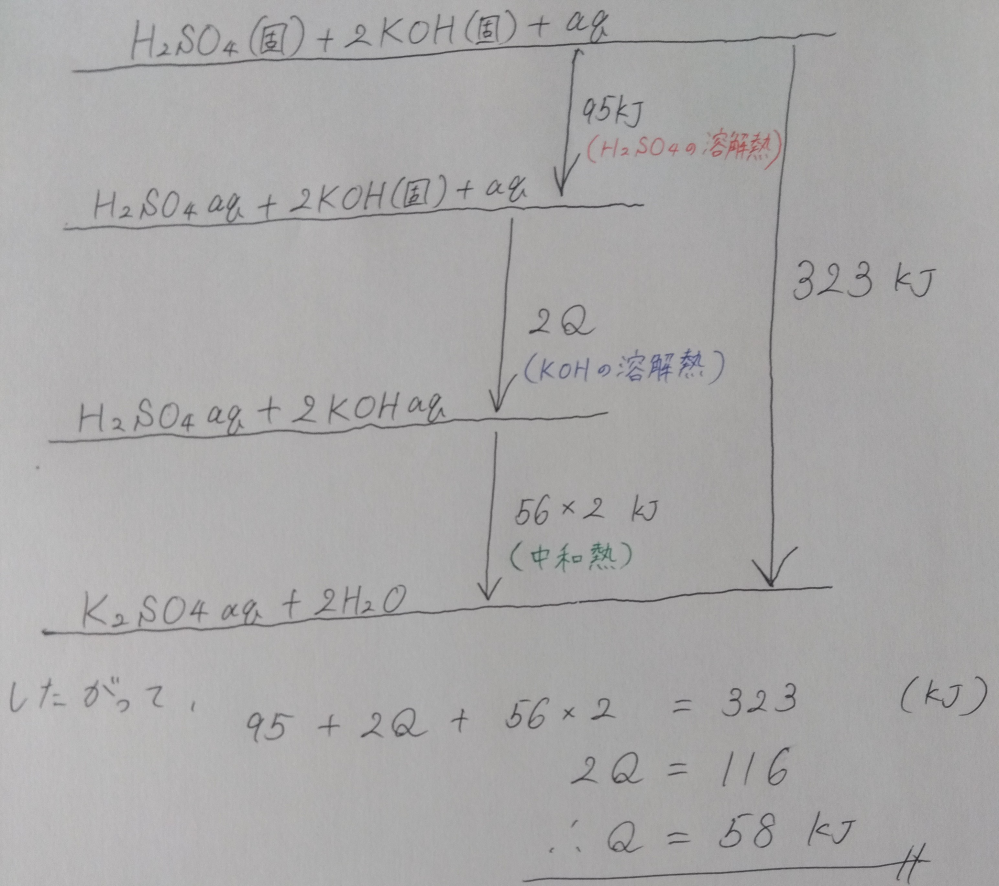 H₂SO₄(固) + 2KOH(固) + aq
95kJ
(H₂SO₄の溶解熱)
H₂SO₄ aq + 2KOH(固) + aq
323 kJ
2Q
(KOHの溶解熱)
H₂SO₄ aq + 2KOH aq
56×2 kJ
(中和熱)
K₂SO₄ aq + 2H₂O
したがって,
95 + 2Q + 56×2 = 323 (kJ)
2Q = 116
∴ Q = 58 kJ